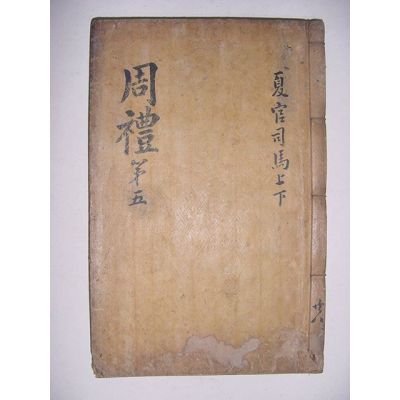 周禮
第五
夏官司馬上下